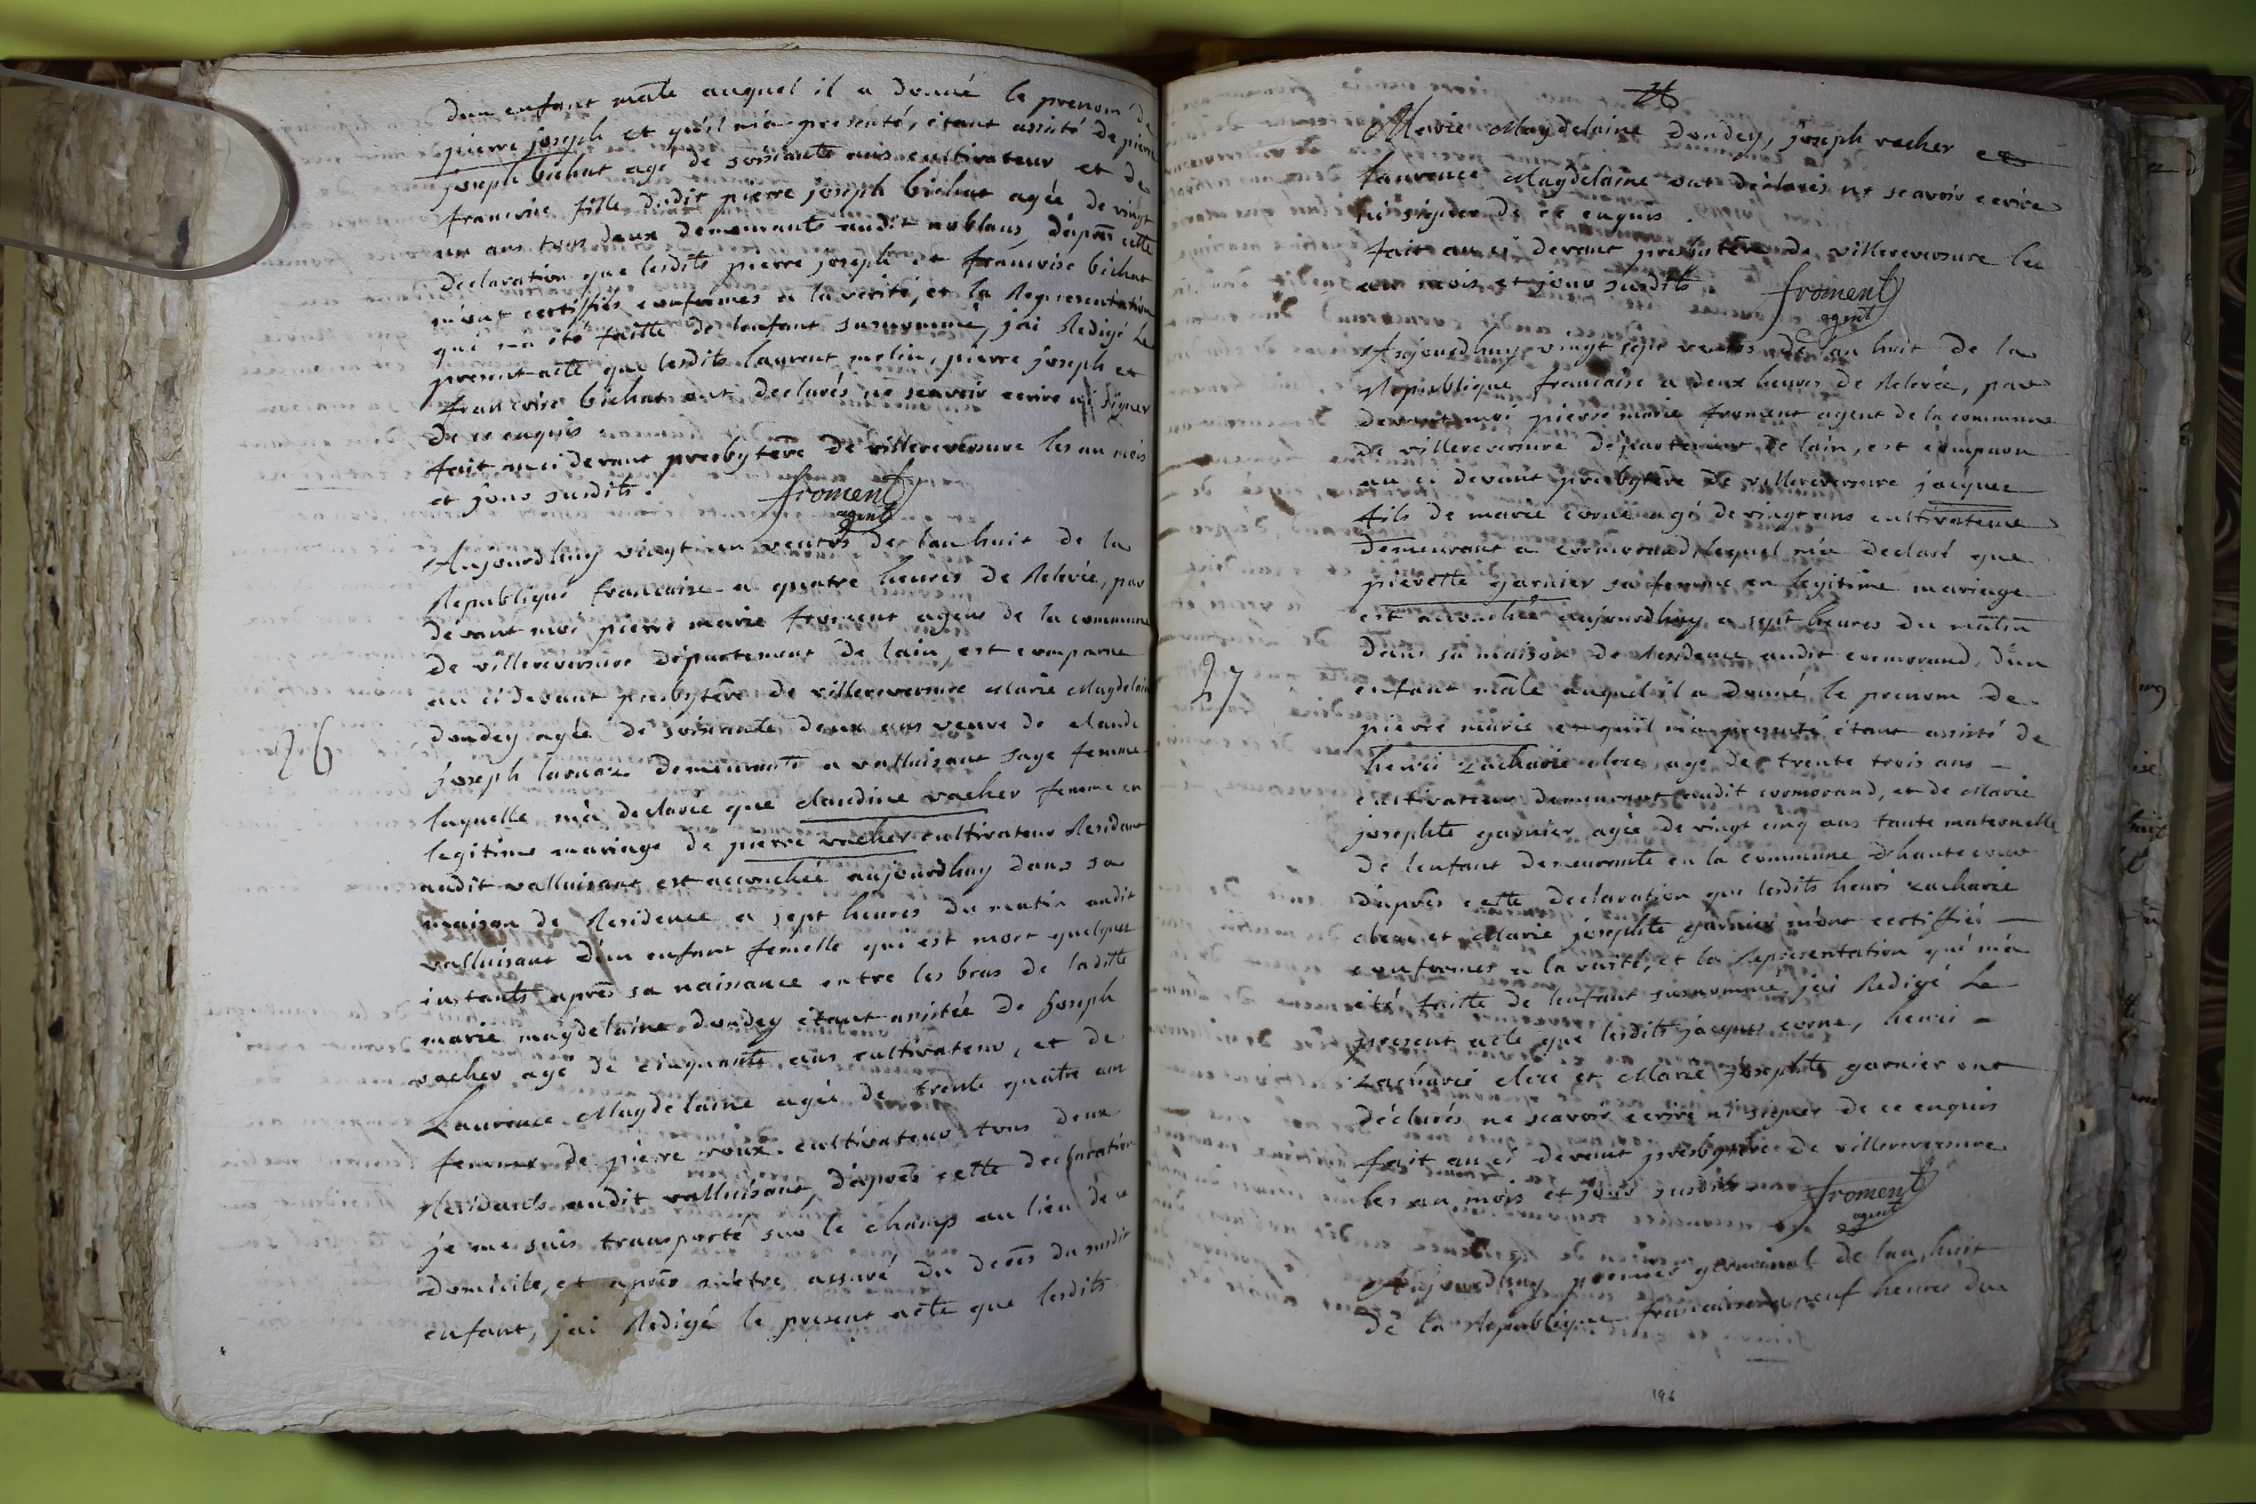 dun enfant mâle auquel il a donné le prenom de
pierre joseph et quil m'a presenté, étant assisté de pierre
joseph bichat agé de soixante ans cultivateur et de
francoise fille dudit pierre joseph bichat agée de vingt
un ans tous deux demeurants audit noblans, dáprés cette
declaration que lesdits pierre joseph et francoise bichat
m'ont certiffiés conformes a la verité, et la Representation
qui m'a été faitte de lenfant surnommé, jai Redigé Le
present acte que lesdits laurent melin, pierre joseph et
francoise bichat ont declarés ne scavoir ecrire ni signer
de ce enquis
fait au ci devant presbytère de villereversure les an mois
et jour susdits.
froment
agent
Aujourdhuy vingt un ventos de lan huit de la
Republique francaise a quatre heures de Relevée, par
devant moi pierre marie froment agent de la commune
de villereversure département de lain, est comparue
au ci devant presbytère de villereversure Marie Magdelaine
dondey agée de soixante deux ans veuve de claude
26
joseph larnaz demeurante a valluisant sage femme
laquelle m'a declarée que claudine vacher femme en
legitime mariage de pierre vacher cultivateur Residant
audit valluisant est accouchée aujourdhuy dans sa
maison de Residence a sept heures du matin audit
valluisant dún enfant femelle qui est mort quelques
instants aprés sa naissance entre les bras de laditte
marie magdelaine dondey étant assistée de joseph
vacher agé de cinquante ans cultivateur, et de
Laurence Magdelaine agée de trente quatre ans
femme de pierre roux cultivateur tous deux
Residants audit valluisant, dáprés cette declaration
je me suis transporté sur le champ au lieu de ce
domicile, et aprés m'etre assuré du decés du susdit
enfant, jai Redigé le present acte que lesdits
Marie Magdelaine dondey, joseph vacher et
laurence Magdelaine ont déclarés ne scavoir ecrire
ni signer de ce enquis.
fait au ci devant presbytère de villereversure les
an mois et jour susdits.
froment
agent
Aujourdhuy vingt sept ventos de lan huit de la
Republique francaise a deux heures de Relevée, par
devant moi pierre marie froment agent de la commune
de villereversure département de lain, est comparu
au ci devant presbytère de villereversure jacque
fils de marie corne agé de vingt ans cultivateur
demeurant a cormorand, lequel m'a declaré que
pierette garnier sa femme en legitime mariage
est accouchée aujourdhuy a sept heures du matin
dans sa maison de Residence audit cormorand, dún
27
enfant mâle auquel il a donné le prenom de
pierre marie et quil m'a presenté étant assisté de
henri zacharie clerc agé de trente trois ans
cultivateur demeurant audit cormorand, et de Marie
josephte garnier agée de vingt cinq ans tante maternelle
de lenfant demeurante en la commune d'hautecour
dáprés cette declaration que lesdits henri zacharie
clerc et Marie josephte garnier m'ont certiffiés
conformes a la vérité, et la Representation qui m'a
été faitte de lenfant surnommé, jai Redigé Le
present acte que lesdits jacques corne, henri
zacharie clerc et Marie josephte garnier ont
déclarés ne scavoir ecrire ni signer de ce enquis
fait au ci devant presbytère de villereversure
les an mois et jour susdits.
froment
agent
Aujourdhuy premier germinal de lan huit
de la Republique francaise a neuf heures du
196